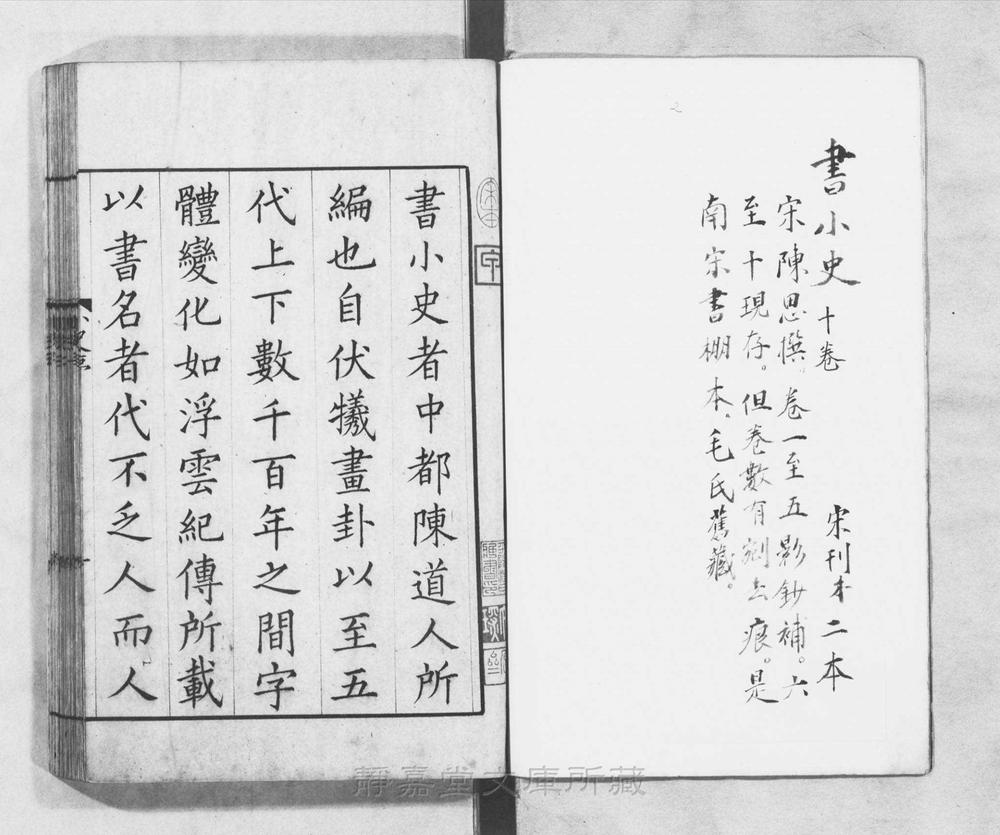 書小史 十卷 宋刊本 二本
宋陳思撰。卷一至五影鈔補。六
至十現存。但卷數有剜去痕。是
南宋書棚本。毛氏舊藏。
書小史者中都陳道人所
編也自伏犧畫卦以至五
代上下數千百年之間字
體變化如浮雲紀傳所載
以書名者代不乏人而人
靜嘉堂文庫所藏